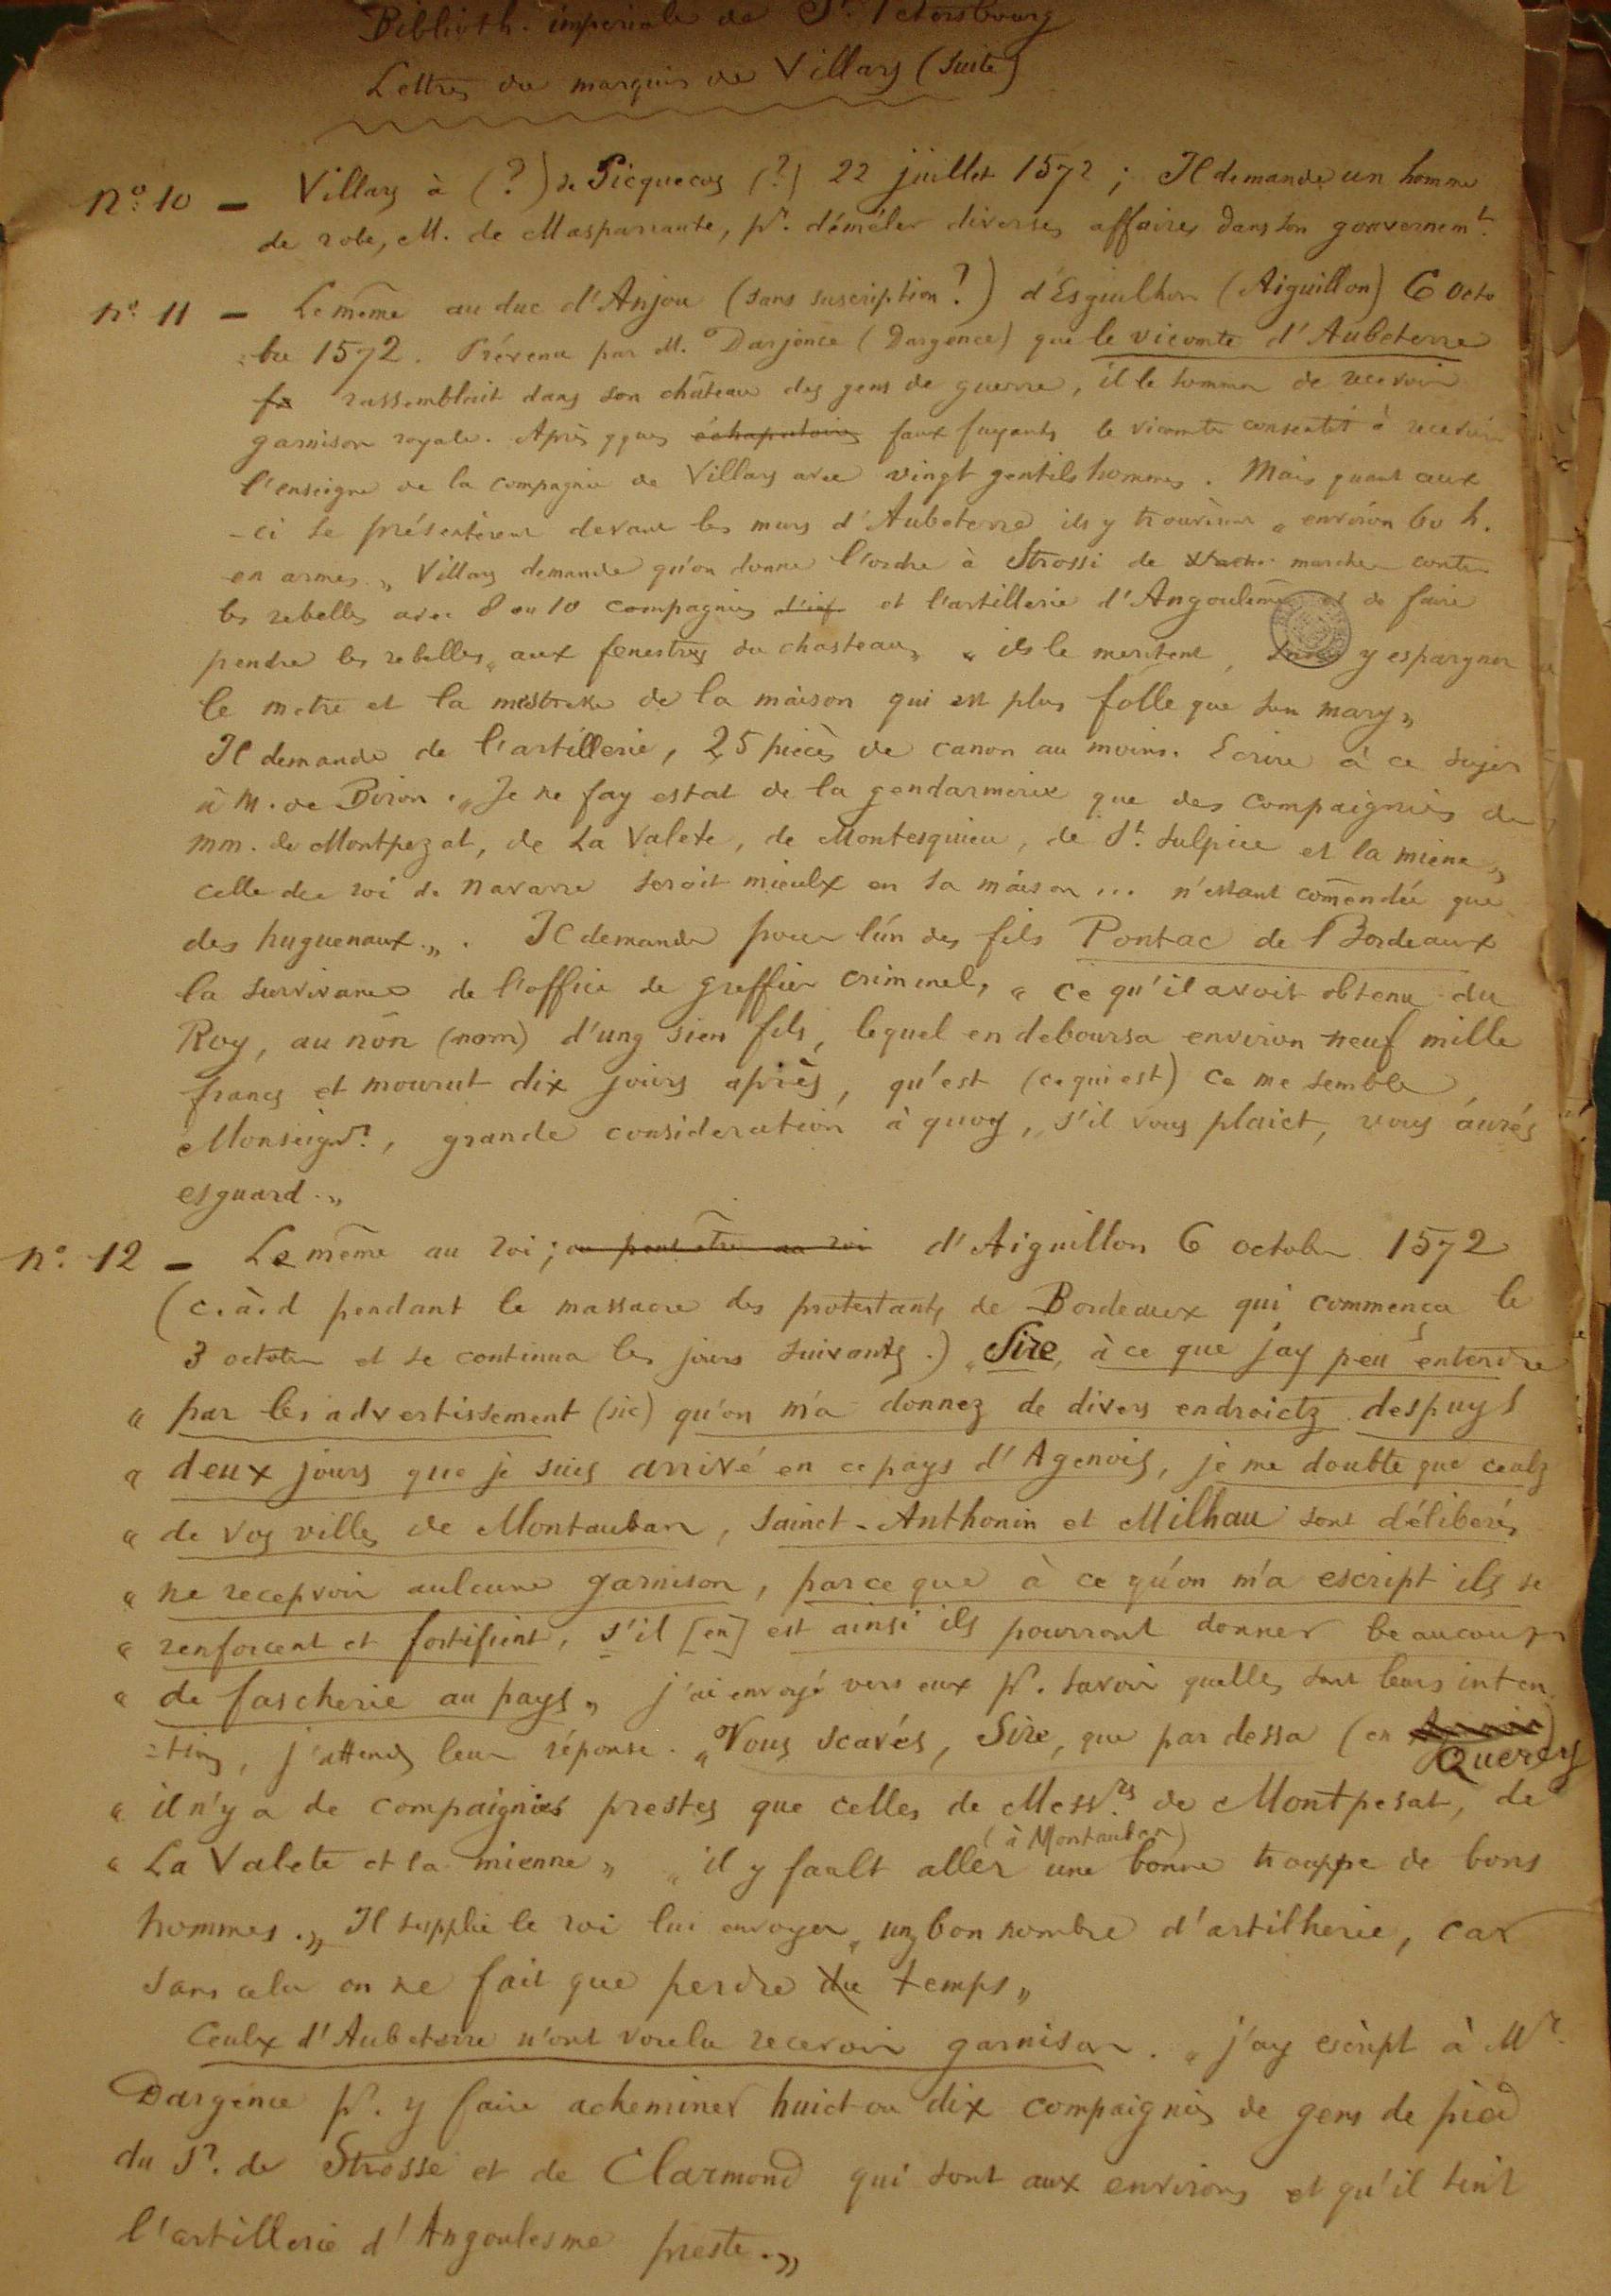 Biblioth. imperiale de St. Petersbourg
Lettres du marquis de Villars (suite)
no. 10 — Villars à (?) de Picquecos (?) 22 juillet 1572 ; Il demande un homme
de robe, M. de Masparraute, pr. démêler diverses affaires dans son gouvernemt.
no. 11 — Le même au duc d'Anjou (sans suscription ?) d'Esguilhon (Aiguillon) 6 octo
bre 1572. Prévenu par M. Darjence (Dargence) que le vicomte d'Aubeterre
rassemblait dans son château des gens de guerre, il le somma de recevoir
garnison royale. Après qques échapatoires faux fuyants le vicomte consentit à recevoir
l'enseigne de la compagnie de Villars avec vingt gentilshommes. Mais quant ceux
-ci se présentèrent devant les murs d'Aubeterre ils y trouvèrent " environ 60 h.
en armes " Villars demande qu'on donne l'ordre à Strossi de marcher contre
les rebelles avec 8 ou 10 compagnies et l'artillerie d'Angoulême et de faire
pendre les rebelles " aux fenestres du chasteau " " ils le meritent, sans y espargner
le metre et la mestresse de la maison qui est plus folle que son mary "
Il demande de l'artillerie, 25 pièces de canon au moins. Ecrire à ce sujet
à M. de Biron. " Je ne fay estat de la gendarmerie que des compaignies de
mm. de Montpezat, de La Valete, de Montesquieu, de St. Sulpice et la miene "
celle du roi de navarre seroit mieulx en sa maison ... n'estant comendée que
des huguenaux. " . Il demande pour l'un des fils Pontac de Bordeaux
la survivance de l'office de greffier criminel, " ce qu'il avoit obtenu du
Roy, au nōn (nom) d'ung sien fils, lequel en deboursa environ neuf mille
francs et mourut dix jours après, qu'est (ce qui est) ce me semble
Monseignr., grande consideration à quoy, s'il vous plaict, vous áurés
esguard. "
no. 12 — Le même au roi ; ou peut être au roi d'Aiguillon 6 octobre 1572
(c.à.d pendant le massacre des protestants de Bordeaux qui commença le
3 octobre et se continua les jours suivants.) " Sire, à ce que j'ay peu entendre
" par les advertissement (sic) qu'on m'a donnez de divers endroictz despuys
" deux jours que je suis arrivé en ce pays d'Agenois, je me doubte que ceulz
" de vos villes de Montauban, Sainct-Anthonin et Milhau sont déliberés
" ne recepvoir aulcune garnison, parce que à ce qu'on m'a escript ils se
" renforcent et fortifient, s'il [en] est ainsi ils pourront donner beaucoup
" de fascherie au pays " j'ai envoyé vers eux pr. savoir quelles sont leurs inten
-tions, j'attends leur réponse. " Vous scavés, Sire, que par dessa (en Quercy)
" il n'y a de compaignies prestes que celles de Messrs. de Montpesat, de
(à Montauban)
" La Valete et la mienne " " il y fault aller une bonne trouppe de bons
hommes. " Il supplie le roi lui envoyer " ung bon nombre d'artilherie, car
sans cela on ne fait que perdre du temps "
Ceulx d'Aubeterre n'ont voulu recevoir garnison. " j'ay escript à Mr.
Dargence pr. y faire acheminer huict ou dix compaignies de gens de pied
du Sr. de Strosse et de Clarmond qui sont aux environs et qu'il tint
l'artillerie d'Angoulesme preste. "